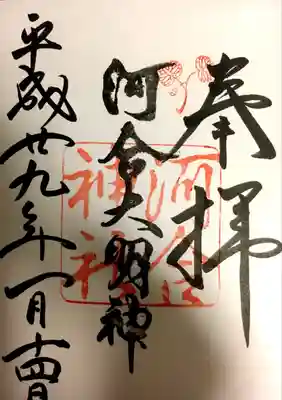 奉拝
河合大明神
河合神社
平成廿九年一月十四日